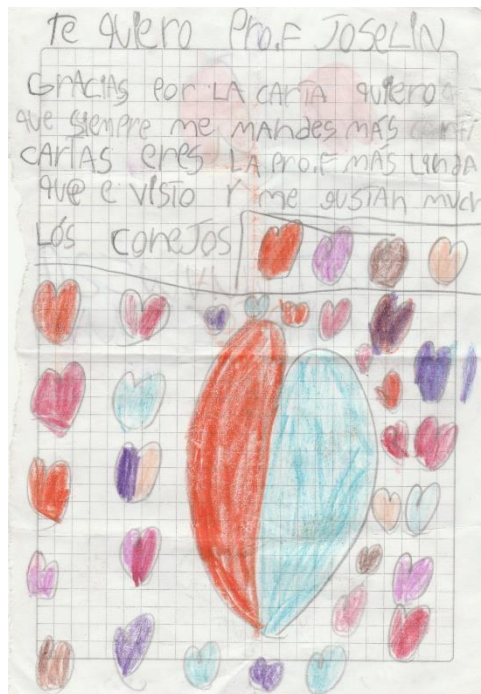 Te quiero Pro.F JOSELIN
GRACIAS POR LA CARTA quiero
que siempre me mandes MÁS
CARTAS eres LA Pro.F MÁS LINDA
que e visto Y me gustan much
LÓS CONEJOS